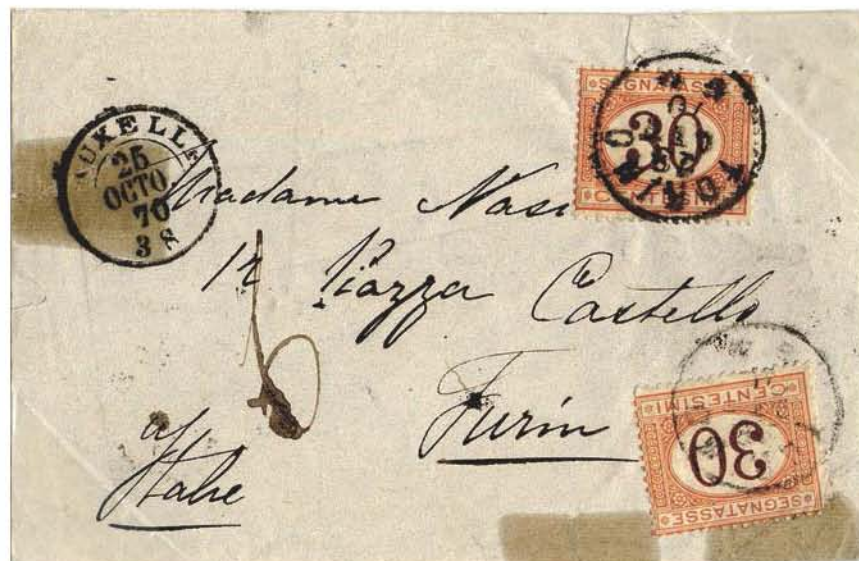 BRUXELLES
25
OCTO
70
3 S
SEGNATASSE
30
CENTESIMI
TORINO
Madame Nasi
12 Piazza Castello
Turin
Italie
6
CENTESIMI
30
SEGNATASSE